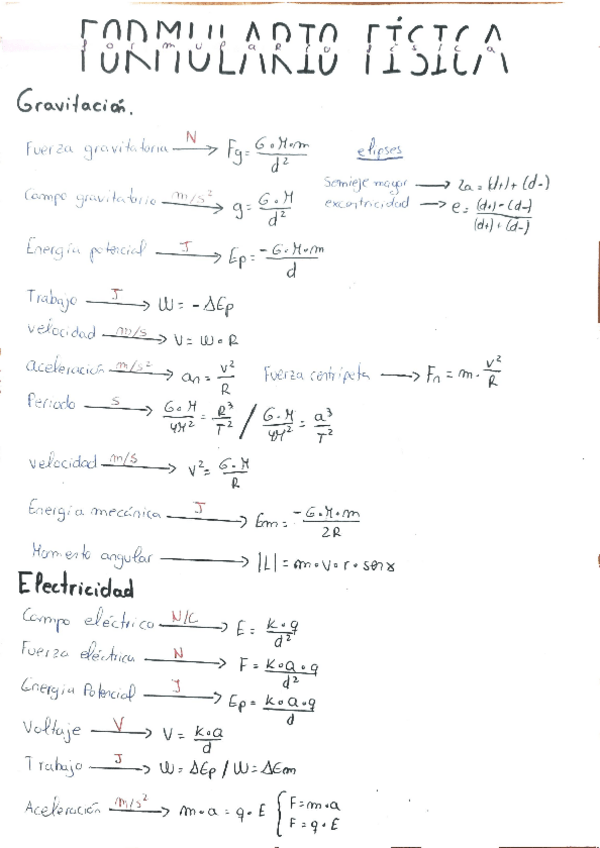 FORMULARIO FÍSICA
Formulario física
Gravitación.
Fuerza gravitatoria N → Fg = G·M·m / d²
elipses
Semieje mayor → 2a = (d+) + (d-)
Campo gravitatorio m/s² → g = G·M / d²
excentricidad → e = (d+) - (d-) / (d+) + (d-)
Energía potencial J → Ep = -G·M·m / d
Trabajo J → W = -ΔEp
velocidad m/s → V = w·R
aceleración m/s² → an = v² / R
Fuerza centripeta → Fn = m · v² / R
Periodo s → G·M / 4π² = R³ / T² / G·M / 4π² = a³ / T²
velocidad m/s → v² = G·M / R
Energía mecánica J → Em = -G·M·m / 2R
Momento angular → |L| = m·v·r·sen α
Electricidad
Campo eléctrico N/C → E = k·q / d²
Fuerza eléctrica N → F = K·Q·q / d²
Energía Potencial J → Ep = k·Q·q / d
Voltaje V → V = K·Q / d
Trabajo J → W = ΔEp / W = ΔEm
Aceleración m/s² → m·a = q·E { F = m·a
F = q·E